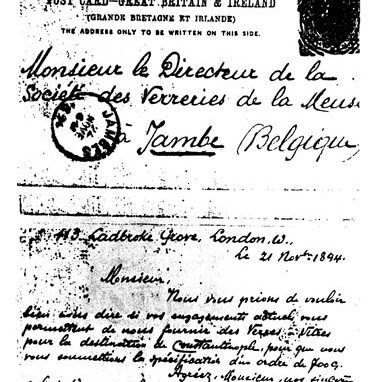 POST CARD—GREAT BRITAIN & IRELAND
(GRANDE BRETAGNE ET IRLANDE)
THE ADDRESS ONLY TO BE WRITTEN ON THIS SIDE.
Monsieur le Directeur de la
Société des Verreries de la Meuse
à Jambe (Belgique)
JAMBES
113, Ladbroke Grove, London, W.,
le 21 Novbre 1894.
Monsieur,
Nous vous prions de vouloir
bien nous dire si vos engagements actuels vous
permettent de nous fournir des Verres à Vitres
pour la destination de Constantinople, pour que nous
vous soumettions la spécification d'un ordre de
Agréez, Monsieur, nos sincères